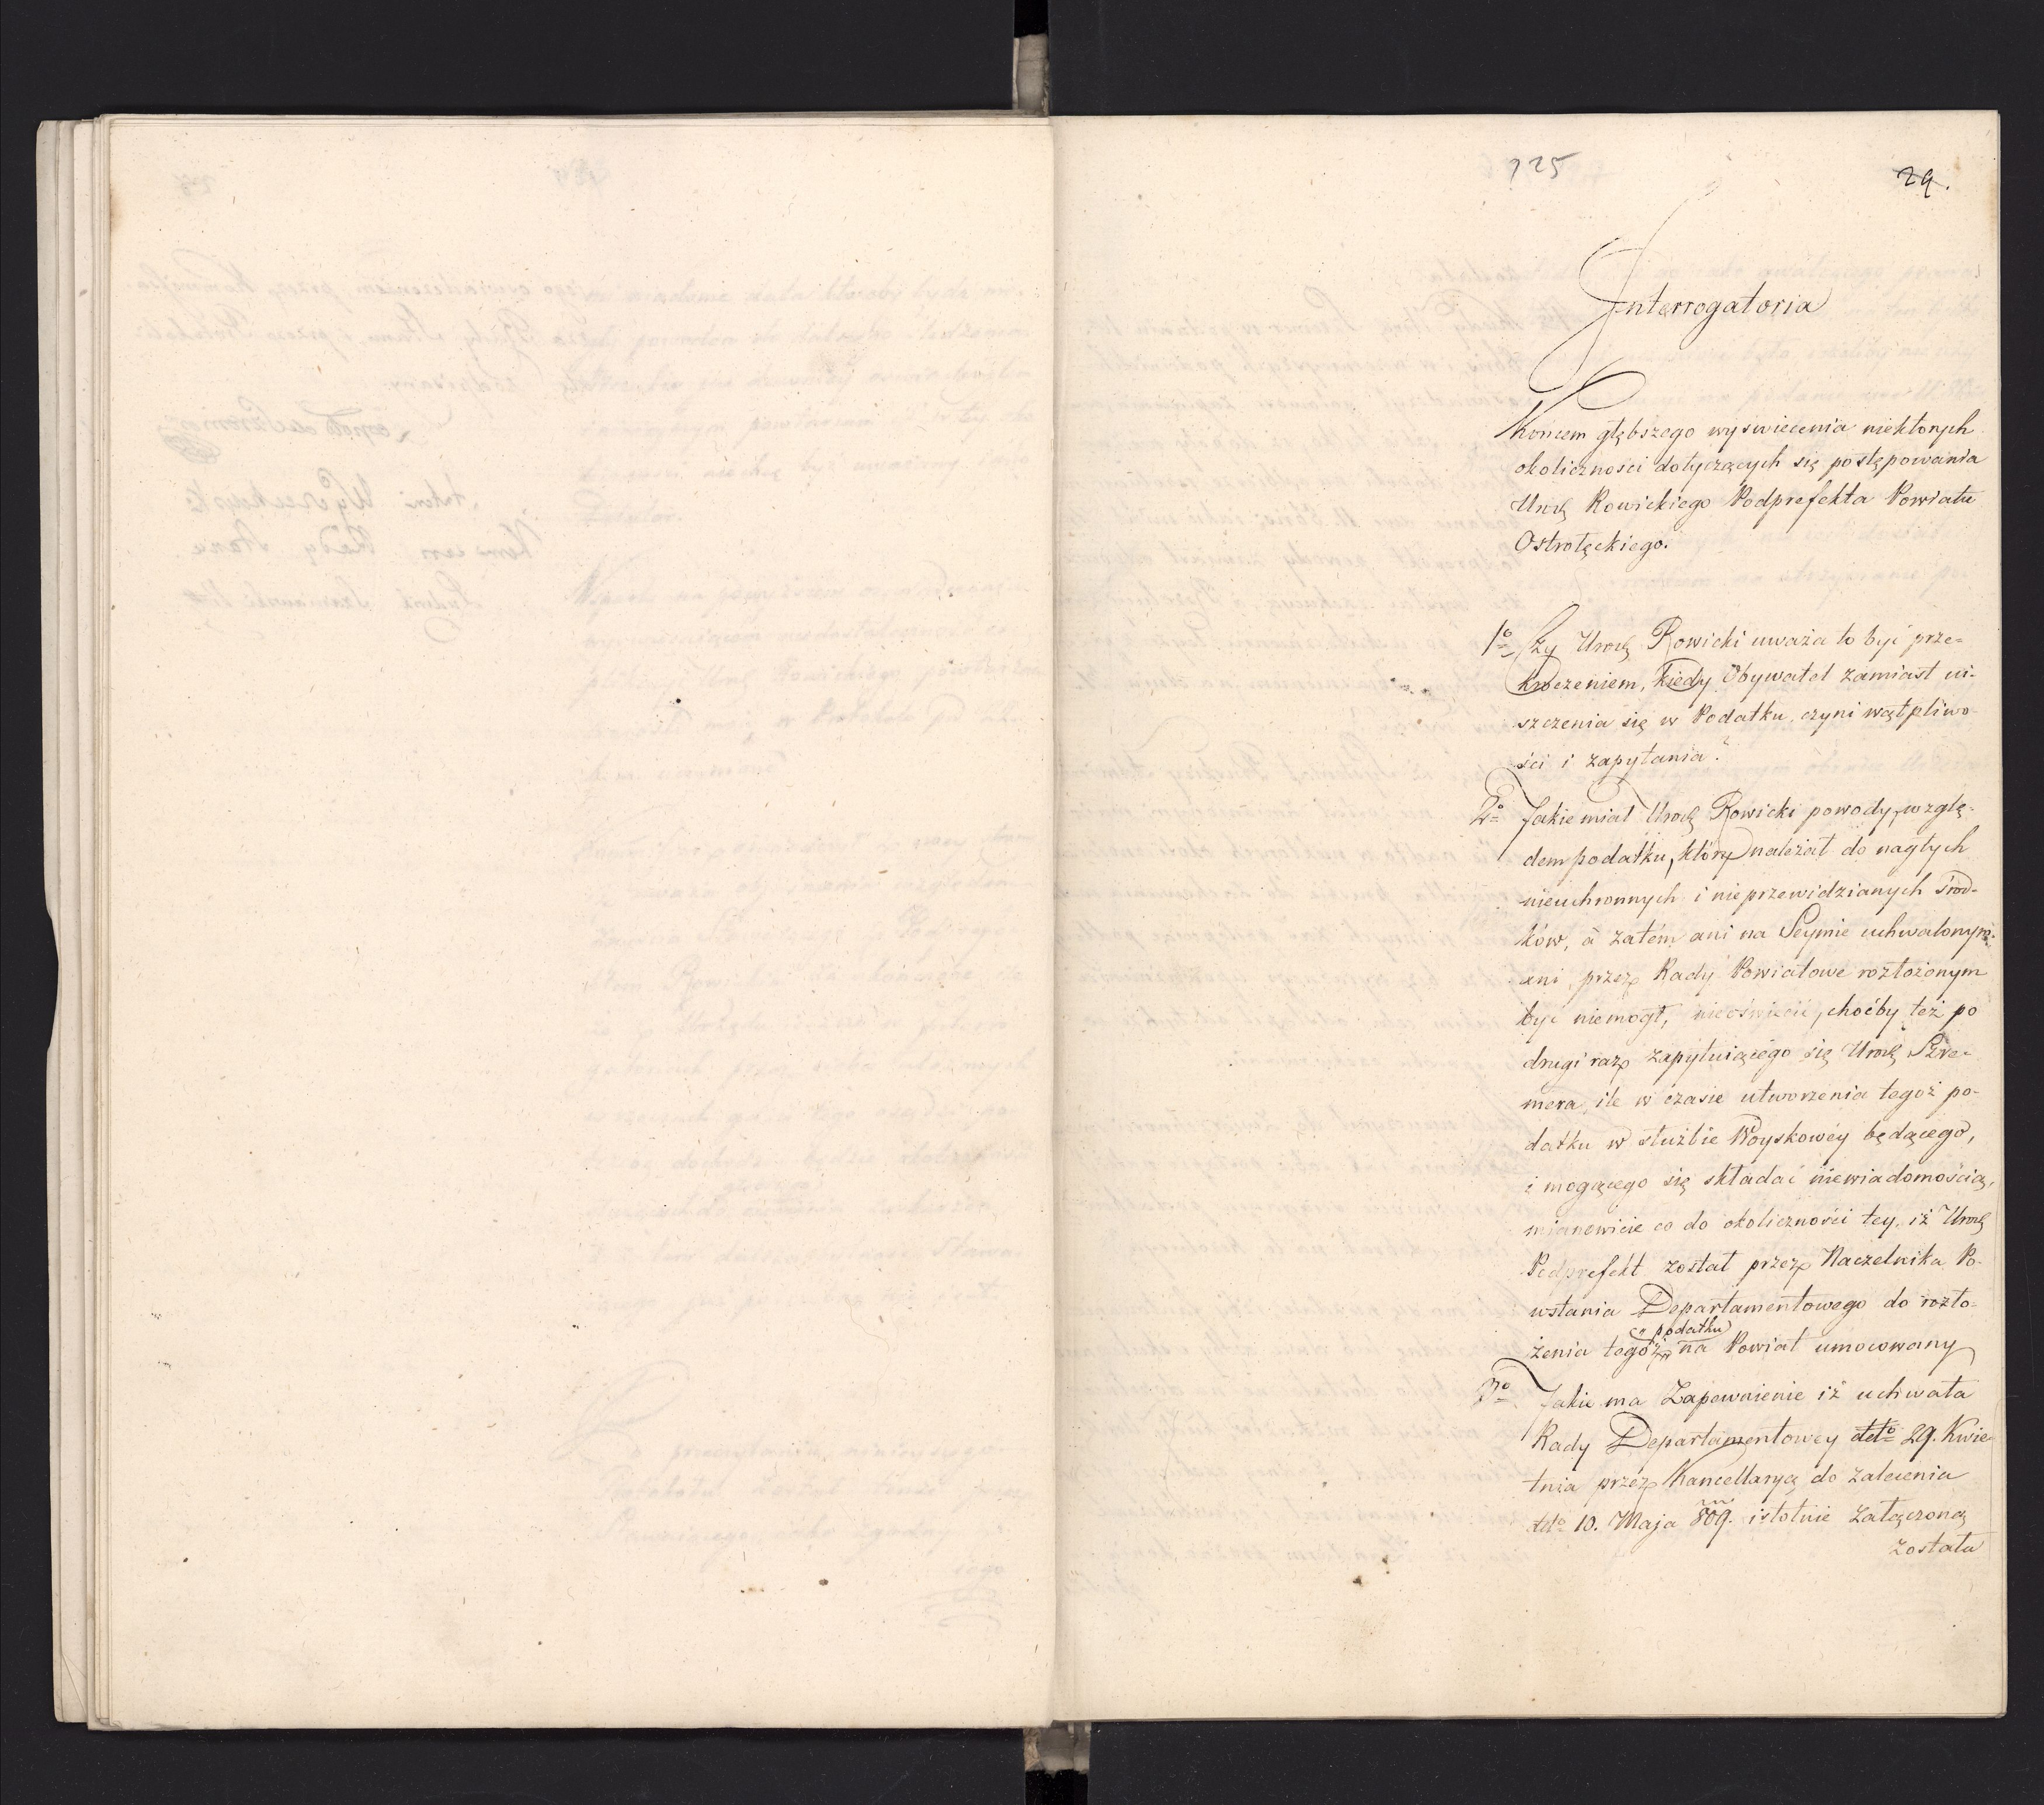 125
29.
Interrogatoria
Koncem głębszego wyswiecenia niektorych
okoliczności dotyczących się postępowania
Urodz Rowickiego Podprefekta Powiatu
Ostrołęckiego.
1o Czy Urodz Rowicki uważa to być prze=
kroczeniem, kiedy Obywatel zamiast ui-
szczenia się w Podatku, czyni wątpliwo-
ści i zapytania?
2o Jakie miał Urodz Rowicki powody, wzglę-
dem podatku, który należał do nagłych
nieuchronnych i nieprzewidzianych środ-
ków, à zatém ani na Seymie uchwalonym
ani przez Rady Powiatowe rozłożonym
być niemogł, nieoświecić, choćby też po
drugi raz zapytuiącégo się Urodz
mera, ile w czasie utworzenia tegoż po-
datku w służbie Woyskowéy będącego,
i mogącego się składać niewiadomością,
mianowicie co do okoliczności tey, iż Urodz
Podprefekt został przez Naczelnika Po-
wstania Departamentowego do rozło-
żenia tegoż podatku na Powiat umocowany
3o Jakie ma Zapewnienie iż uchwała
Rady Departamentowey ddto 29. Kwie-
tnia przez Kancellaryą do zalecenia
ddto 10. Maja 809. istotnie załączoną
została